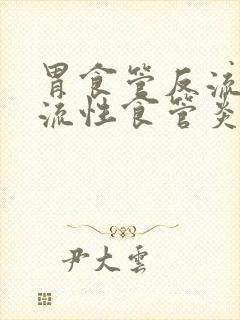 胃食管反流
流性食管炎
尹大雲